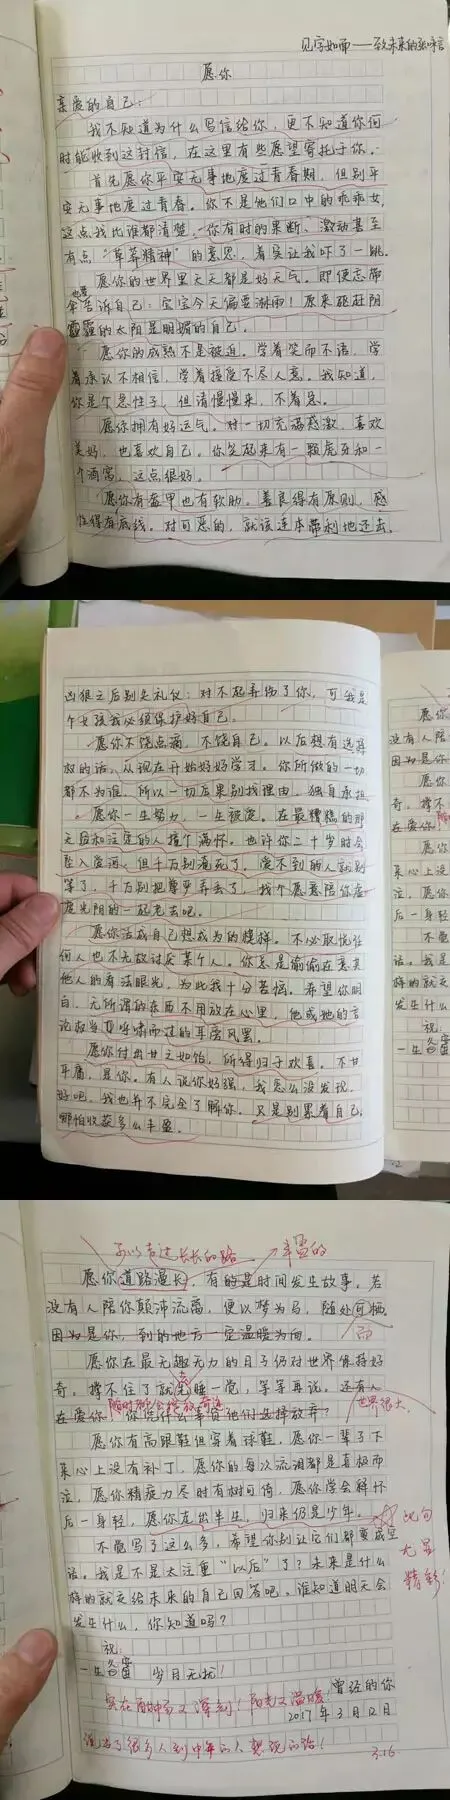 见字如面——致未来的
愿你
亲爱的自己：
我不知道为什么写信给你，更不知道你何
时能收到这封信，在这里有些愿望寄托于你。
首先愿你平安无事地度过青春期，但别平
安无事地度过青春。你不是他们口中的乖乖女，
这点我比谁都清楚，你有时的果断、激动甚至
有点“草莽精神”的意思，着实让我吓了一跳。
愿你的世界里天天都是好天气。即使忘带
伞也要告诉自己：宝宝今天偏要淋雨！原来驱赶阴
霾的太阳是明媚的自己。
愿你的成熟不是被迫。学着笑而不语，学
着承认不相信，学着接受不尽人意。我知道，
你是个急性子，但请慢慢来，不着急。
愿你拥有好运气。对一切充满感激，喜欢
美好，也喜欢自己。你笑起来有一颗虎牙和一
个酒窝，这点很好。
愿你有盔甲也有软肋。善良得有原则，感
性得有底线。对可恶的，就该连本带利地还去，
凶狠之后别失礼仪：对不起弄伤了你，可我是
个女孩我必须保护好自己。
愿你不饶点滴，不饶自己。以后想有选择
权的话，从现在开始好好学习。你所做的一切
都不为谁，所以一切后果别找理由，独自承担。
愿你一生努力，一生被爱。在最糟糕的那
天和注定的人撞个满怀。也许你二十岁时会
坠入爱河，但千万别淹死了，爱不到的人就别
等了，千万别把尊严弄丢了，找个愿意陪你虚
度光阴的一起老去吧。
愿你活成自己想成为的模样。不必取悦任
何人也不无故讨厌某个人。你总是偷偷在意其
他人的看法眼光，为此我十分苦恼。希望你明
白，无所谓的东西不用放在心里，他或她的言
论权当耳旁呼啸而过的耳旁风罢。
愿你付出甘之如饴，所得归于欢喜。不甘
平庸，是你。有人说你好强，我怎么没发现，
好吧，我也并不完全了解你。只是别累着自己，
哪怕收获多么丰盈。
可以走过长长的路 丰盈的
愿你道路漫长，有的是时间发生故事。若
没有人陪你颠沛流离，便以梦为马，随处可栖，
因为是你，到的地方一定温暖为面。
即
愿你在最无趣无力的日子仍对世界保持好
奇。撑不住了就去睡一觉，等等再说。还有人
随时都会绽放奇迹
世界很大，
在爱你，你凭什么辜负他们选择放弃？
愿你有高跟鞋但穿着球鞋，愿你一辈子下
来心上没有补丁，愿你的每次流泪都是喜极而
泣，愿你精疲力尽时有树可倚，愿你学会释怀
后一身轻，愿你走出半生，归来仍是少年。
此句尤显精彩！
不觉写了这么多，希望你别让它们都变成空
话。我是不是太注重“以后”了？未来是什么
样的就交给未来的自己回答吧。谁知道明天会
发生什么，你知道吗？
祝：
一生备蜜 岁月无扰！
曾经的你
实在有才又深刻！阳光又温暖
2017年3月12日
说出了很多人到中年的人想说的话！
3.16